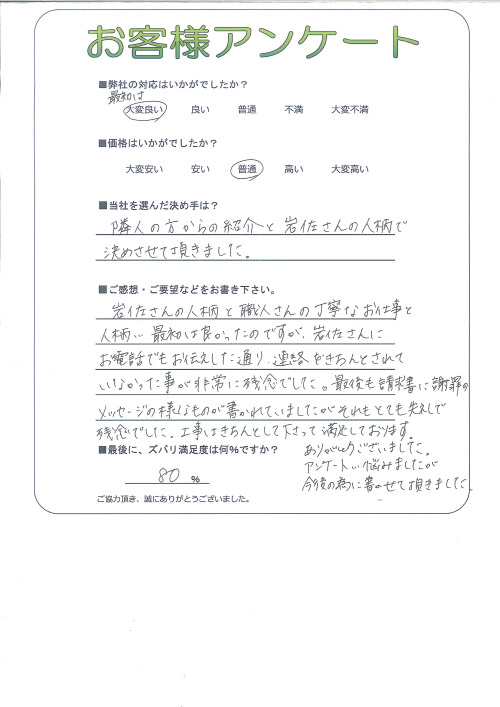 お客様アンケート
■弊社の対応はいかがでしたか？
最初は
大変良い 良い 普通 不満 大変不満
■価格はいかがでしたか？
大変安い 安い 普通 高い 大変高い
■当社を選んだ決め手は？
隣人の方からの紹介と岩佐さんの人柄で
決めさせて頂きました。
■ご感想・ご要望などをお書き下さい。
岩佐さんの人柄と職人さんの丁寧なお仕事と
人柄… 最初は良かったのですが、岩佐さんに
お電話でもお伝えした通り、連絡をきちんとされて
いなかった事が非常に残念でした。最後も請求書に謝罪の
メッセージの様なものが書かれていましたがそれもとても失礼で
残念でした。工事はきちんとして下さって満足しております。
ありがとうございました。
アンケート…悩みましたが
今後の為に書かせて頂きました。
■最後に、ズバリ満足度は何%ですか？
80 %
ご協力頂き、誠にありがとうございました。